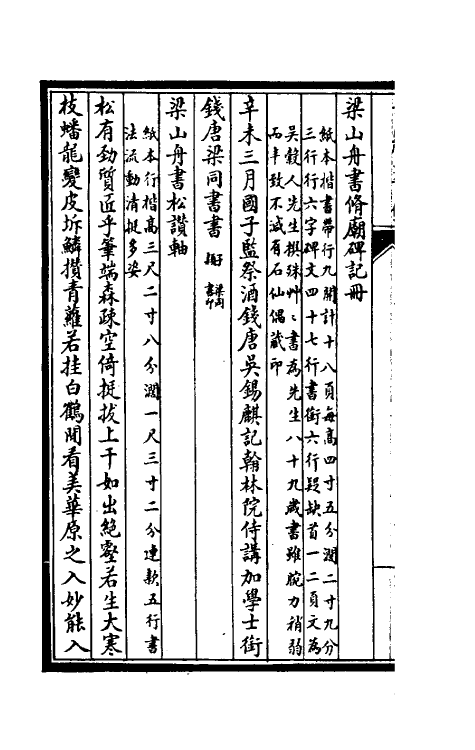 梁山舟書脩廟碑記冊
紙本楷書帶行九開計十八頁每高四寸五分濶二寸九分
三行行六字碑文四十七行書銜六行疑缺首一二頁文為
吳穀人先生撰殊艸艸書為先生八十九歲書雖腕力稍弱
而丰致不減有石仙偶藏印
辛未三月國子監祭酒錢唐吳錫麒記翰林院侍講加學士銜
錢唐梁同書書
梁山舟書松讚軸
紙本行楷高三尺二寸八分濶一尺三寸二分連款五行書
法流動清挺多姿
松有勁質匠乎筆端森疎空倚挺拔上干如出絕壑若生大寒
枝蟠龍變皮坼鱗攢青蘿若挂白鶴閒看美華原之入妙能入